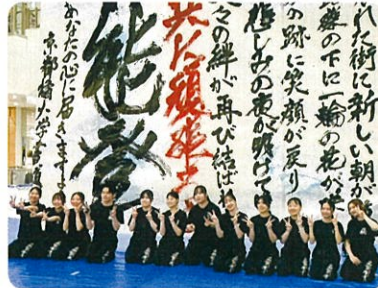 れた街に新しい朝が
の下に一輪の花が
の跡に笑顔が戻り
悲しみの夜が明けて
々の絆が再び結ばれ
共に頑張ろ
能登
あなたの心に届きますよ
京都橘大学